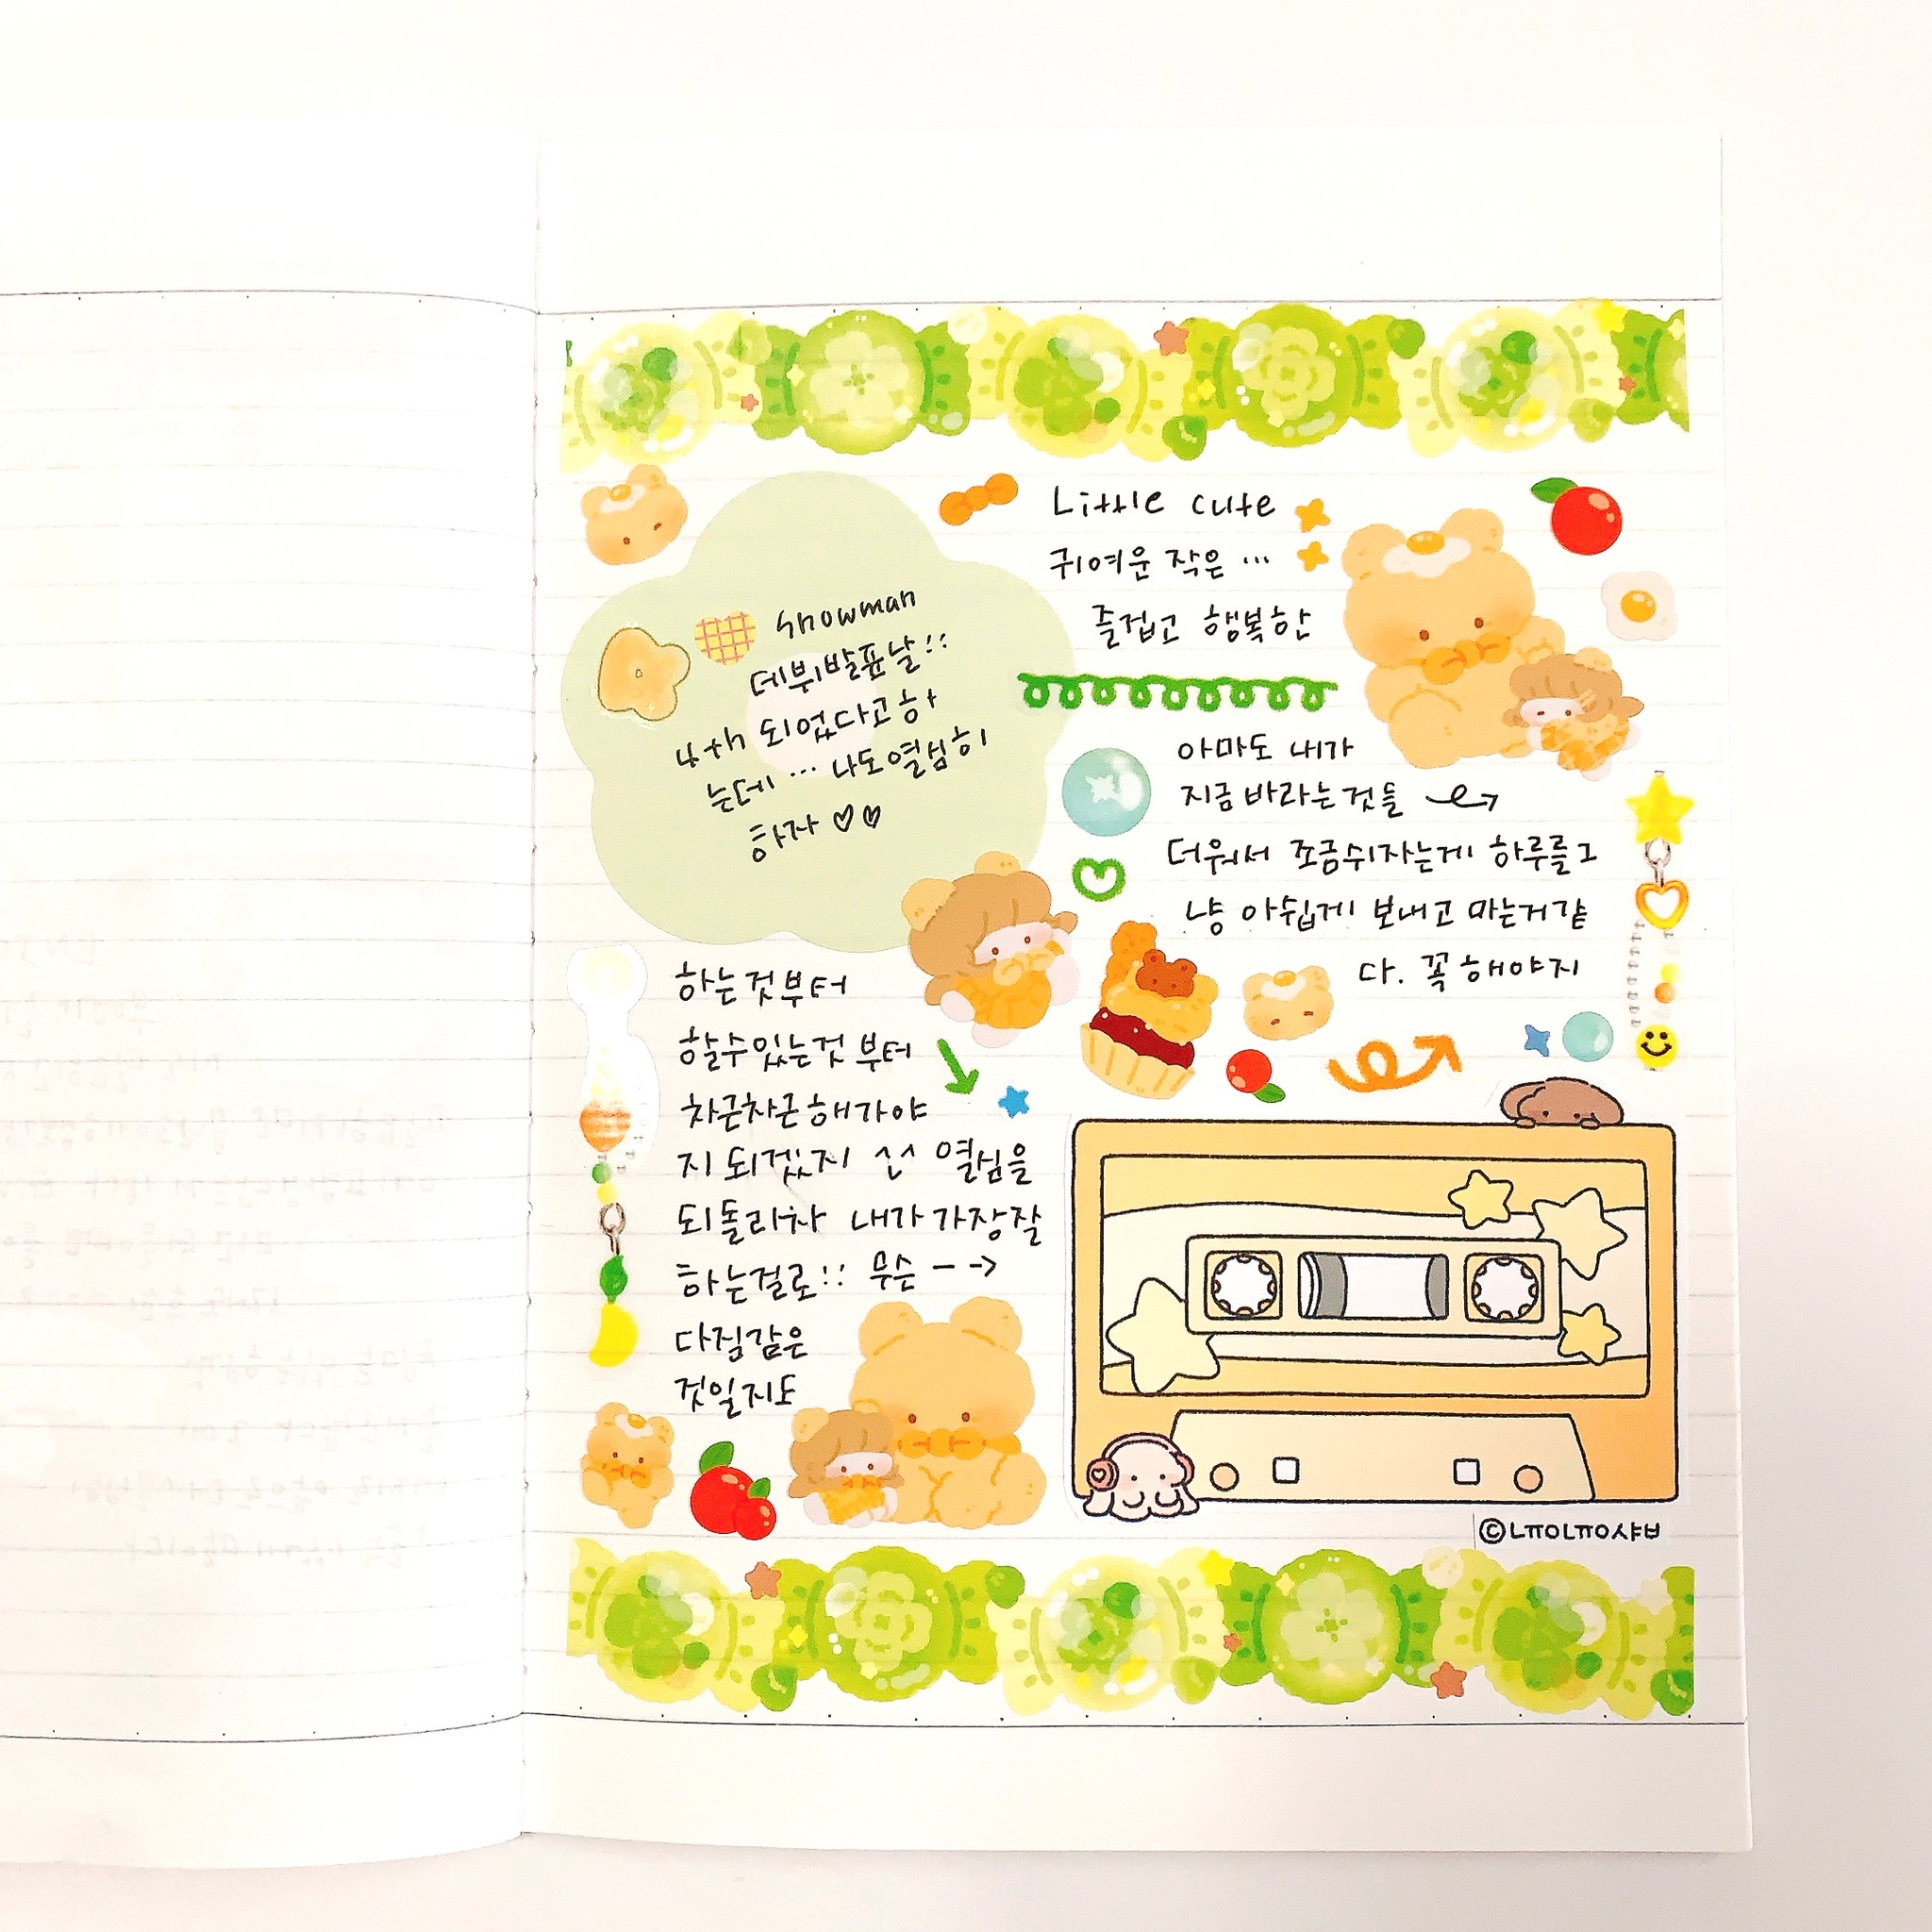 Snowman
데뷔발표날!!
4+4 되었다고하
는데 ... 나도열심히
하자 ♡♡
Little cute
귀여운 작은 ...
즐겁고 행복한
아마도 내가
지금 바라는것들
더워서 조금쉬자는게 하루를그
냥 아쉽게 보내고 마는거같
다. 꼭 해야지
하는것부터
할수있는것 부터
차근차근해가야
지 되겠지 ^^ 열심을
되돌리자 내가 가장잘
하는걸로!! 무슨 -->
다짐같은
것일지도
©ㄴㅠㅇㄴㅠㅇ샤ㅂ